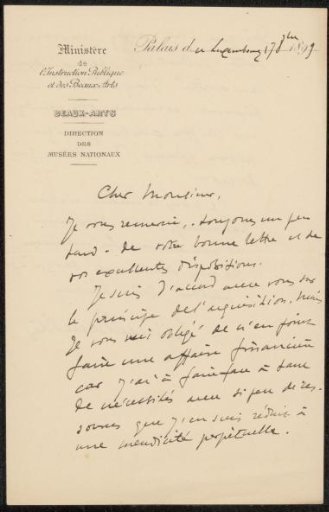 Ministère
de
l'Instruction Publique
et des Beaux-Arts
BEAUX-ARTS
DIRECTION
DES
MUSÉES NATIONAUX
Palais du Luxembourg 17 8bre 1899
Cher Monsieur,
Je vous remercie, - toujours un peu
tard - de votre bonne lettre et de
vos excellentes dispositions.
Je suis d'accord avec vous sur
le principe de l'acquisition, mais
je vous suis obligé de n'en point
faire une affaire financière
car j'ai à faire face à tant
de nécessités avec si peu de res-
sources que j'en suis réduit à
une mendicité perpétuelle.